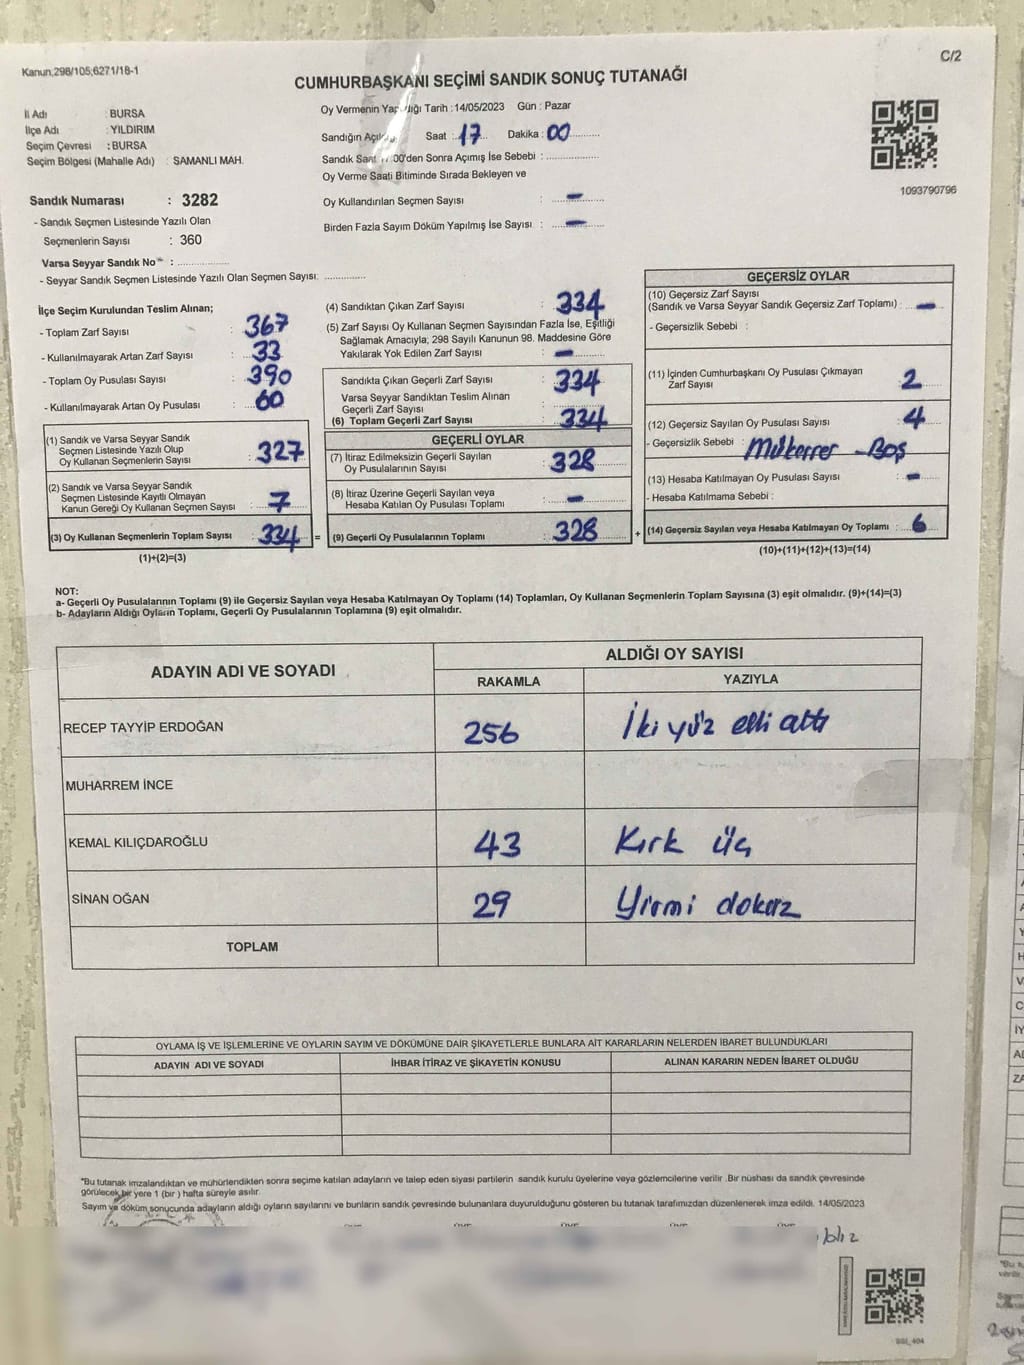 Kanun,298/105;6271/18-1
C/2
CUMHURBAŞKANI SEÇİMİ SANDIK SONUÇ TUTANAĞI
İl Adı : BURSA
İlçe Adı : YILDIRIM
Seçim Çevresi : BURSA
Seçim Bölgesi (Mahalle Adı) : SAMANLI MAH.
Sandık Numarası : 3282
- Sandık Seçmen Listesinde Yazılı Olan
Seçmenlerin Sayısı : 360
Varsa Seyyar Sandık No* :
- Seyyar Sandık Seçmen Listesinde Yazılı Olan Seçmen Sayısı:
Oy Vermenin Tarih :14/05/2023 Gün : Pazar
Sandığın Saat : 17 Dakika : 00
Sandık 00'den Sonra Açımış İse Sebebi :
Oy Verme Saati Bitiminde Sırada Bekleyen ve
Oy Kullandırılan Seçmen Sayısı : -
Birden Fazla Sayım Döküm Yapılmış İse Sayısı : -
1093790796
İlçe Seçim Kurulundan Teslim Alınan;
- Toplam Zarf Sayısı : 367
- Kullanılmayarak Artan Zarf Sayısı : 33
- Toplam Oy Pusulası Sayısı : 390
- Kullanılmayarak Artan Oy Pusulası : 60
(1) Sandık ve Varsa Seyyar Sandık
Seçmen Listesinde Yazılı Olup
Oy Kullanan Seçmenlerin Sayısı : 327
(2) Sandık ve Varsa Seyyar Sandık
Seçmen Listesinde Kayıtlı Olmayan
Kanun Gereği Oy Kullanan Seçmen Sayısı : 7
(3) Oy Kullanan Seçmenlerin Toplam Sayısı : 334
(1)+(2)=(3)
(4) Sandıktan Çıkan Zarf Sayısı : 334
(5) Zarf Sayısı Oy Kullanan Seçmen Sayısından Fazla İse, Eşitliği
Sağlamak Amacıyla; 298 Sayılı Kanunun 98. Maddesine Göre
Yakılarak Yok Edilen Zarf Sayısı : -
Sandıkta Çıkan Geçerli Zarf Sayısı : 334
Varsa Seyyar Sandıktan Teslim Alınan
Geçerli Zarf Sayısı :
(6) Toplam Geçerli Zarf Sayısı : 334
GEÇERLİ OYLAR
(7) İtiraz Edilmeksizin Geçerli Sayılan
Oy Pusulalarının Sayısı : 328
(8) İtiraz Üzerine Geçerli Sayılan veya
Hesaba Katılan Oy Pusulası Toplamı : -
= (9) Geçerli Oy Pusulalarının Toplamı : 328
GEÇERSİZ OYLAR
(10) Geçersiz Zarf Sayısı
(Sandık ve Varsa Seyyar Sandık Geçersiz Zarf Toplamı) : -
- Geçersizlik Sebebi :
(11) İçinden Cumhurbaşkanı Oy Pusulası Çıkmayan
Zarf Sayısı : 2
(12) Geçersiz Sayılan Oy Pusulası Sayısı : 4
- Geçersizlik Sebebi : Mükerrer - Boş
(13) Hesaba Katılmayan Oy Pusulası Sayısı : -
- Hesaba Katılmama Sebebi :
+ (14) Geçersiz Sayılan veya Hesaba Katılmayan Oy Toplamı : 6
(10)+(11)+(12)+(13)=(14)
NOT:
a- Geçerli Oy Pusulalarının Toplamı (9) ile Geçersiz Sayılan veya Hesaba Katılmayan Oy Toplamı (14) Toplamları, Oy Kullanan Seçmenlerin Toplam Sayısına (3) eşit olmalıdır. (9)+(14)=(3)
b- Adayların Aldığı Oyların Toplamı, Geçerli Oy Pusulalarının Toplamına (9) eşit olmalıdır.
ADAYIN ADI VE SOYADI ALDIĞI OY SAYISI
RAKAMLA YAZIYLA
RECEP TAYYİP ERDOĞAN 256 İki yüz elli altı
MUHARREM İNCE
KEMAL KILIÇDAROĞLU 43 Kırk üç
SİNAN OĞAN 29 Yirmi dokuz
TOPLAM
OYLAMA İŞ VE İŞLEMLERINE VE OYLARIN SAYIM VE DÖKÜMÜNE DAİR ŞİKAYETLERLE BUNLARA AİT KARARLARIN NELERDEN İBARET BULUNDUKLARI
ADAYIN ADI VE SOYADI İHBAR İTİRAZ VE ŞİKAYETİN KONUSU ALINAN KARARIN NEDEN İBARET OLDUĞU
*Bu tutanak imzalandıktan ve mühürlendikten sonra seçime katılan adayların ve talep eden siyasi partilerin sandık kurulu üyelerine veya gözlemcilerine verilir .Bir nüshası da sandık çevresinde
görülecek bir yere 1 (bir ) hafta süreyle asılır.
Sayım ve döküm sonucunda adayların aldığı oyların sayılarını ve bunların sandık çevresinde bulunanlara duyurulduğunu gösteren bu tutanak tarafımızdan düzenlenerek imza edildi. 14/05/2023